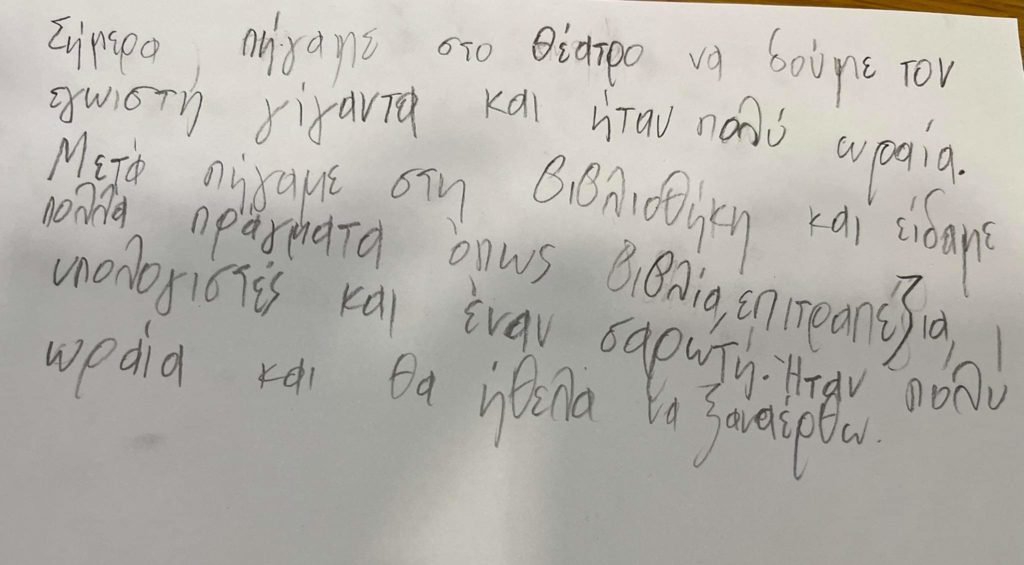 Σήμερα πήγαμε στο θέατρο να δούμε τον
εγωιστή γίγαντα και ήταν πολύ ωραία.
Μετά πήγαμε στη βιβλιοθήκη και είδαμε
πολλά πράγματα όπως βιβλία, επιτραπέζια,
υπολογιστές και έναν σαρωτή. Ήταν πολύ
ωραία και θα ήθελα να ξαναέρθω.